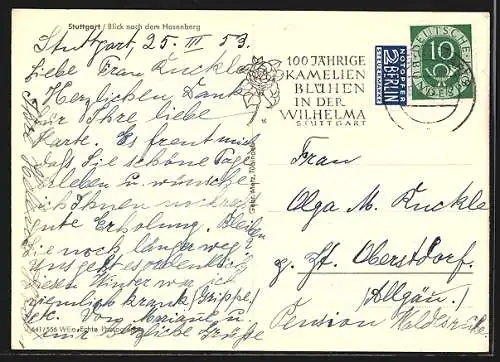 Stuttgart / Blick nach dem Hasenberg
Stuttgart, 25. III 53.
Liebe Frau Kuckle
Herzlichen Dank
für Ihre liebe
Karte. Es freut mich
daß Sie schöne Tage
erleben u. wünsche
Ihnen noch recht
gute Erholung. Bleiben
Sie noch länger weg?
Uns geht es ordentlich
diesen Winter war ich
ziemlich krank (Grippe)
etc. Von
Grüße
100 JÄHRIGE
KAMELIEN
BLÜHEN
IN DER
WILHELMA
STUTTGART
NOTOPFER
2 BERLIN
STEUERMARKE
DEUTSCHE
10
Frau
Olga M. Kuckle
z. Zt. Oberstdorf.
(Allgäu.)
Pension Waldesruhe